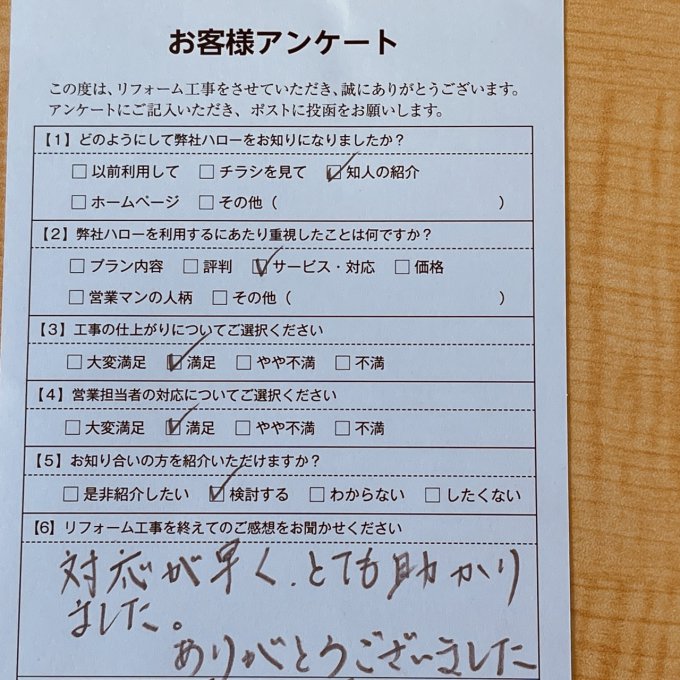 お客様アンケート
この度は、リフォーム工事をさせていただき、誠にありがとうございます。
アンケートにご記入いただき、ポストに投函をお願いします。
【1】どのようにして弊社ハローをお知りになりましたか？
□以前利用して □チラシを見て ☑知人の紹介
□ホームページ □その他（ ）
【2】弊社ハローを利用するにあたり重視したことは何ですか？
□プラン内容 □評判 ☑サービス・対応 □価格
□営業マンの人柄 □その他（ ）
【3】工事の仕上がりについてご選択ください
□大変満足 ☑満足 □やや不満 □不満
【4】営業担当者の対応についてご選択ください
□大変満足 ☑満足 □やや不満 □不満
【5】お知り合いの方を紹介いただけますか？
□是非紹介したい ☑検討する □わからない □したくない
【6】リフォーム工事を終えてのご感想をお聞かせください
対応が早く、とても助かり
ました。
ありがとうございました